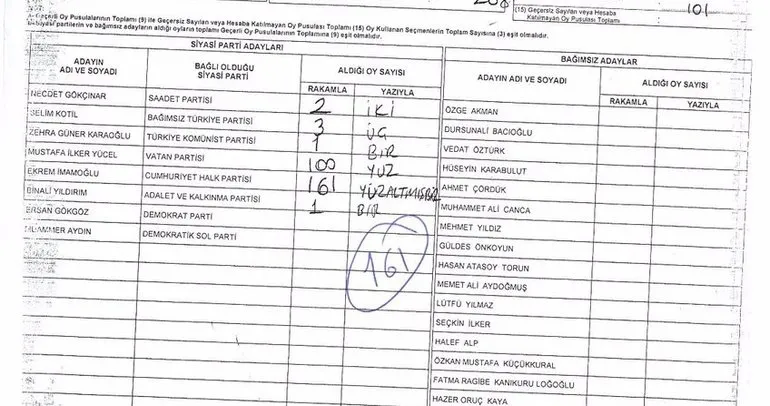 208
(15) Geçersiz Sayılan veya Hesaba
Katılmayan Oy Pusulası Toplamı
101
Geçerli Oy Pusulalarının Toplamı (9) ile Geçersiz Sayılan veya Hesaba Katılmayan Oy Pusulası Toplamı (15) Oy Kullanan Seçmenlerin Toplam Sayısına (3) eşit olmalıdır.
Siyasi partilerin ve bağımsız adayların aldığı oyların toplamı Geçerli Oy Pusulalarının Toplamına (9) eşit olmalıdır.
SİYASİ PARTİ ADAYLARI
BAĞIMSIZ ADAYLAR
ADAYIN
ADI VE SOYADI
BAĞLI OLDUĞU
SİYASİ PARTİ
ALDIĞI OY SAYISI
RAKAMLA
YAZIYLA
ADAYIN ADI VE SOYADI
ALDIĞI OY SAYISI
RAKAMLA
YAZIYLA
NECDET GÖKÇINAR SAADET PARTİSİ 2 İKİ
SELİM KOTİL BAĞIMSIZ TÜRKİYE PARTİSİ 3 ÜÇ
ZEHRA GÜNER KARAOĞLU TÜRKİYE KOMÜNİST PARTİSİ 1 BİR
MUSTAFA İLKER YÜCEL VATAN PARTİSİ 100 YÜZ
EKREM İMAMOĞLU CUMHURİYET HALK PARTİSİ 161 YÜZALTMIŞBİR
BİNALİ YILDIRIM ADALET VE KALKINMA PARTİSİ 1 BİR
ERSAN GÖKGÖZ DEMOKRAT PARTİ
MUAMMER AYDIN DEMOKRATİK SOL PARTİ
161
ÖZGE AKMAN
DURSUNALİ BACIOĞLU
VEDAT ÖZTÜRK
HÜSEYİN KARABULUT
AHMET ÇORDÜK
MUHAMMET ALİ CANCA
MEHMET YILDIZ
GÜLDES ÖNKOYUN
HASAN ATASOY TORUN
MEMET ALİ AYDOĞMUŞ
LÜTFÜ YILMAZ
SEÇKİN İLKER
HALEF ALP
ÖZKAN MUSTAFA KÜÇÜKKURAL
FATMA RAGİBE KANIKURU LOĞOĞLU
HAZER ORUÇ KAYA